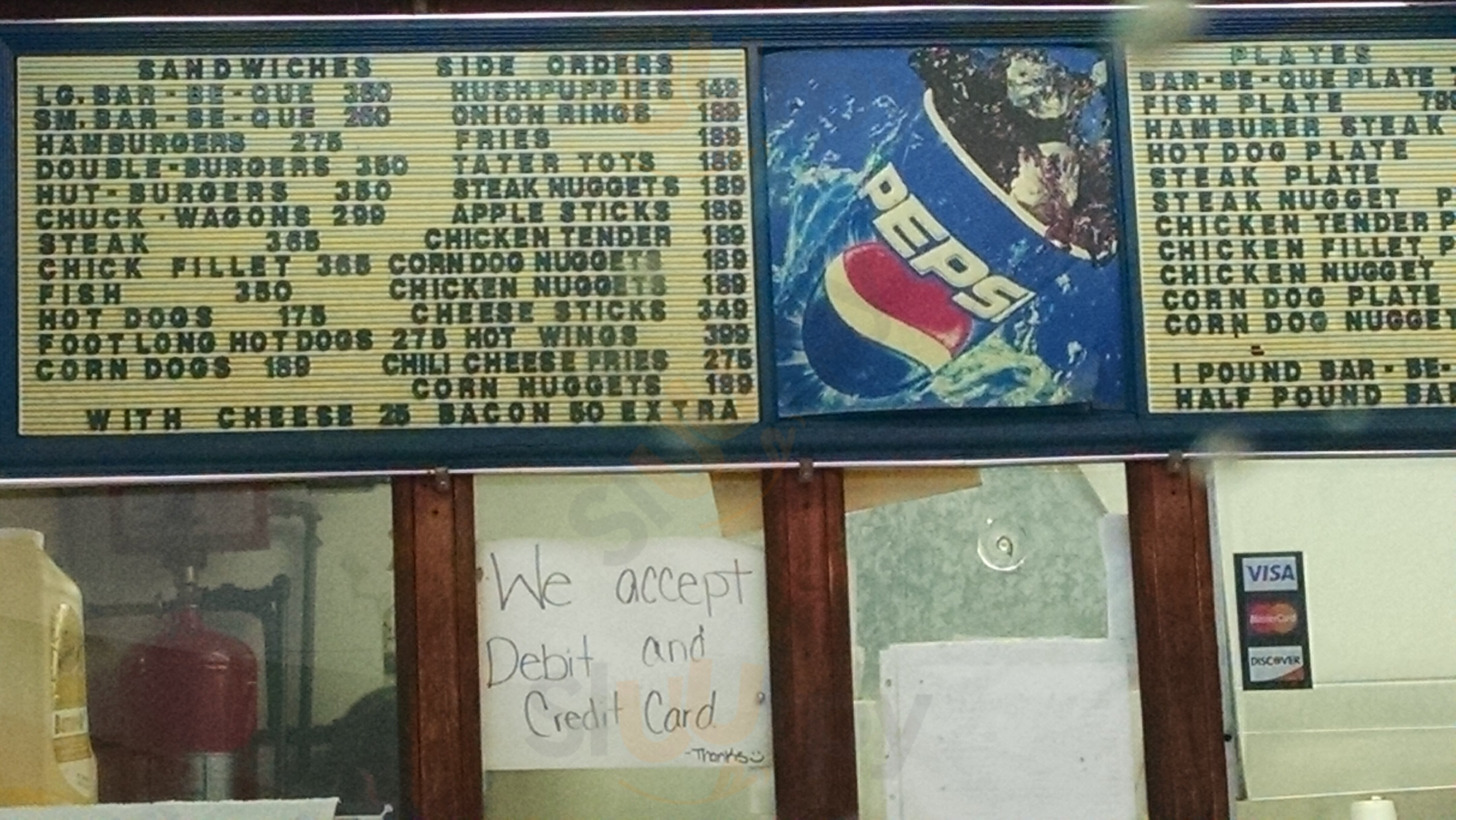 SANDWICHES
LG. BAR-BE-QUE 350
SM. BAR-BE-QUE 250
HAMBURGERS 275
DOUBLE-BURGERS 350
HUT-BURGERS 350
CHUCK-WAGONS 299
STEAK 365
CHICK FILLET 365
FISH 350
HOT DOGS 175
FOOT LONG HOTDOGS 275
CORN DOGS 189
SIDE ORDERS
HUSHPUPPIES 149
ONION RINGS 189
FRIES 189
TATER TOTS 189
STEAK NUGGETS 189
APPLE STICKS 189
CHICKEN TENDER 189
CORNDOG NUGGETS 189
CHICKEN NUGGETS 189
CHEESE STICKS 349
HOT WINGS 399
CHILI CHEESE FRIES 275
CORN NUGGETS 189
WITH CHEESE 25 BACON 50 EXTRA
PEPSI
PLATES
BAR-BE-QUE PLATE
FISH PLATE 799
HAMBURER STEAK
HOT DOG PLATE
STEAK PLATE
STEAK NUGGET P
CHICKEN TENDER P
CHICKEN FILLET P
CHICKEN NUGGET
CORN DOG PLATE
CORN DOG NUGGET
1 POUND BAR-BE-
HALF POUND BAR
We accept
Debit and
Credit Card
-Thanks
VISA
MasterCard
DISCOVER